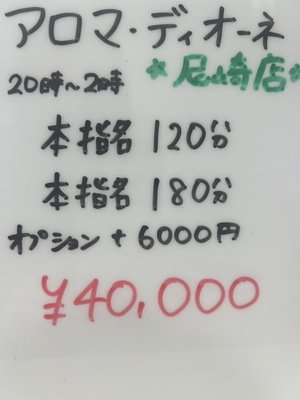 アロマ・ディオーネ
*尼崎店*
20時～2時
本指名 120分
本指名 180分
オプション + 6000円
¥40,000